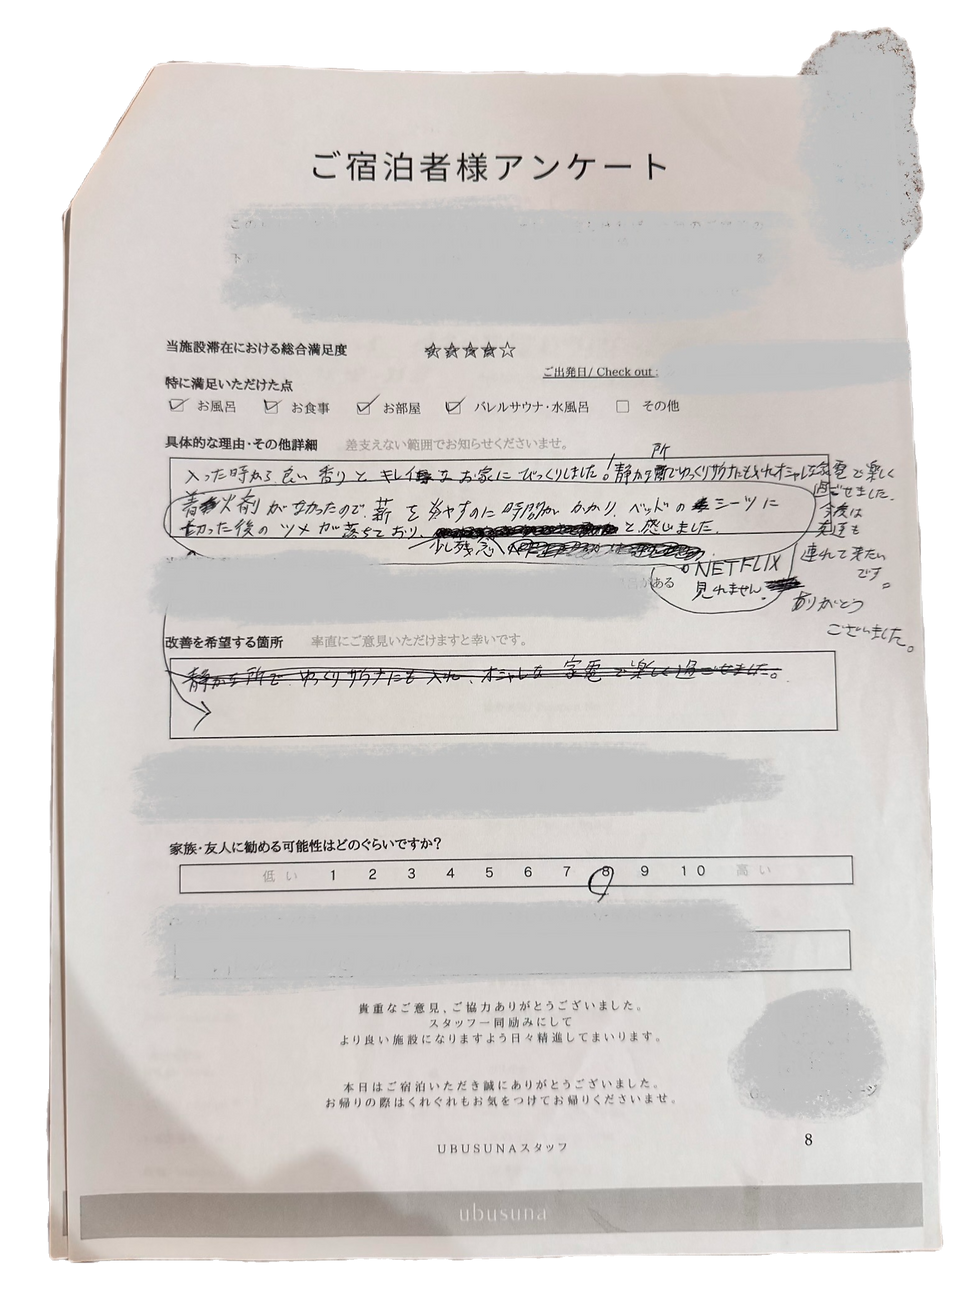 ご宿泊者様アンケート
当施設滞在における総合満足度 ☆☆☆☆☆
ご出発日/ Check out :
特に満足いただけた点
お風呂 お食事 お部屋 バレルサウナ・水風呂 その他
具体的な理由・その他詳細 差支えない範囲でお知らせくださいませ。
入った時から良い香りとキレイなお家にびっくりしました!静かな所でゆっくりサウナにも入れオシャレな家電で楽しく
過ごせました。
今度は
友達も
連れて来たい
です。
ありがとう
ございました。
着火剤が無かったので、薪を労やすのに時間がかかり、ベッドのシーツに
切った後のツメが落ちており、
少し残念 と感じました。
がある
NETFLIX
見れません。
改善を希望する箇所 率直にご意見いただけますと幸いです。
静かな所で、ゆっくりサウナにも入れ、オシャレな家電で楽しく過ごせました。
家族・友人に勧める可能性はどのぐらいですか?
低い 1 2 3 4 5 6 7 8 9 10 高い
貴重なご意見、ご協力ありがとうございました。
スタッフ一同励みにして
より良い施設になりますよう日々精進してまいります。
本日はご宿泊いただき誠にありがとうございました。
お帰りの際はくれぐれもお気をつけてお帰りくださいませ。
UBUSUNAスタッフ
8
ubusuna